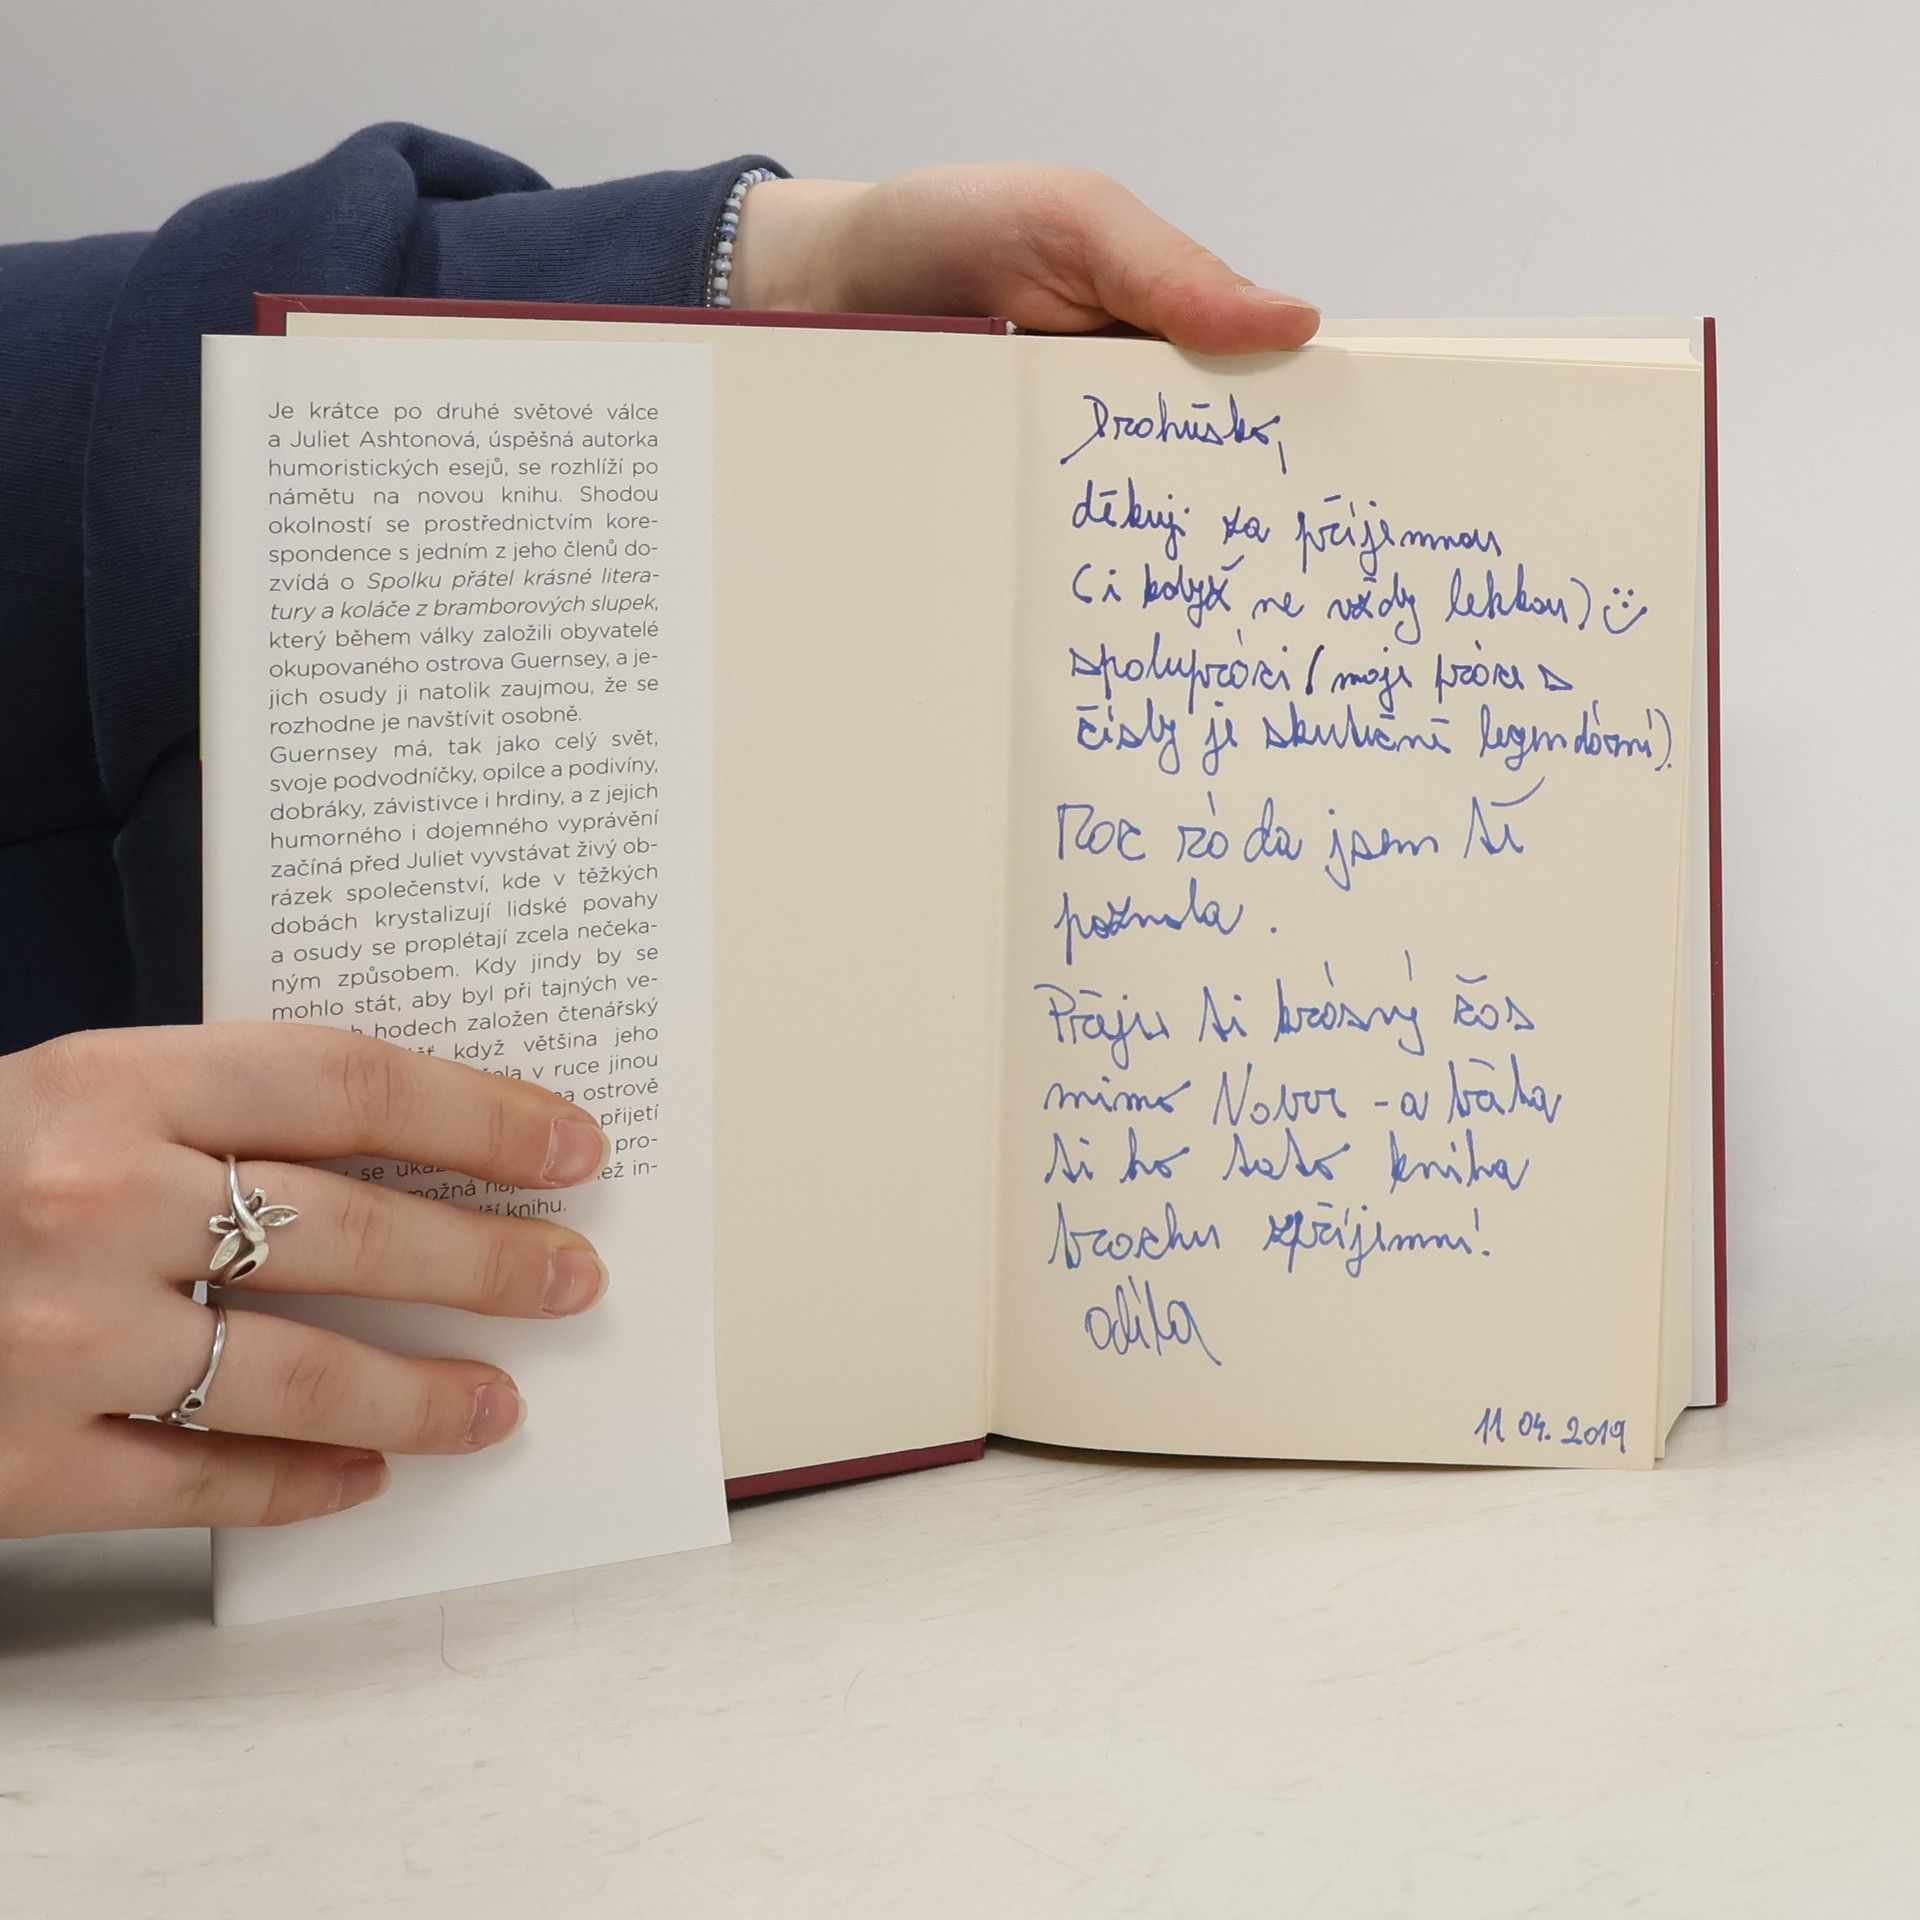 Je krátce po druhé světové válce
a Juliet Ashtonová, úspěšná autorka
humoristických esejů, se rozhlíží po
námětu na novou knihu. Shodou
okolností se prostřednictvím kore-
spondence s jedním z jeho členů do-
zvídá o Spolku přátel krásné litera-
tury a koláče z bramborových slupek,
který během války založili obyvatelé
okupovaného ostrova Guernsey, a je-
jich osudy ji natolik zaujmou, že se
rozhodne je navštívit osobně.
Guernsey má, tak jako celý svět,
svoje podvodníčky, opilce a podivíny,
dobráky, závistivce i hrdiny, a z jejich
humorného i dojemného vyprávění
začíná před Juliet vyvstávat živý ob-
rázek společenství, kde v těžkých
dobách krystalizují lidské povahy
a osudy se proplétají zcela nečeka-
ným způsobem. Kdy jindy by se
mohlo stát, aby byl při tajných ve-
hodech založen čtenářský
když většina jeho
v ruce jinou
ostrově
přijetí
pro-
se in-
možná
knihu.
Drahúško,
děkuji za příjemnou
(i když ne vždy lehkou) :)
spolupráci (moje práce s
čísly je skutečně legendární).
Moc ráda jsem tě
poznala.
Přeju ti krásný čas
mimo Nobor - a třeba
ti ho tato kniha
trochu zpříjemní.
11 04. 2019